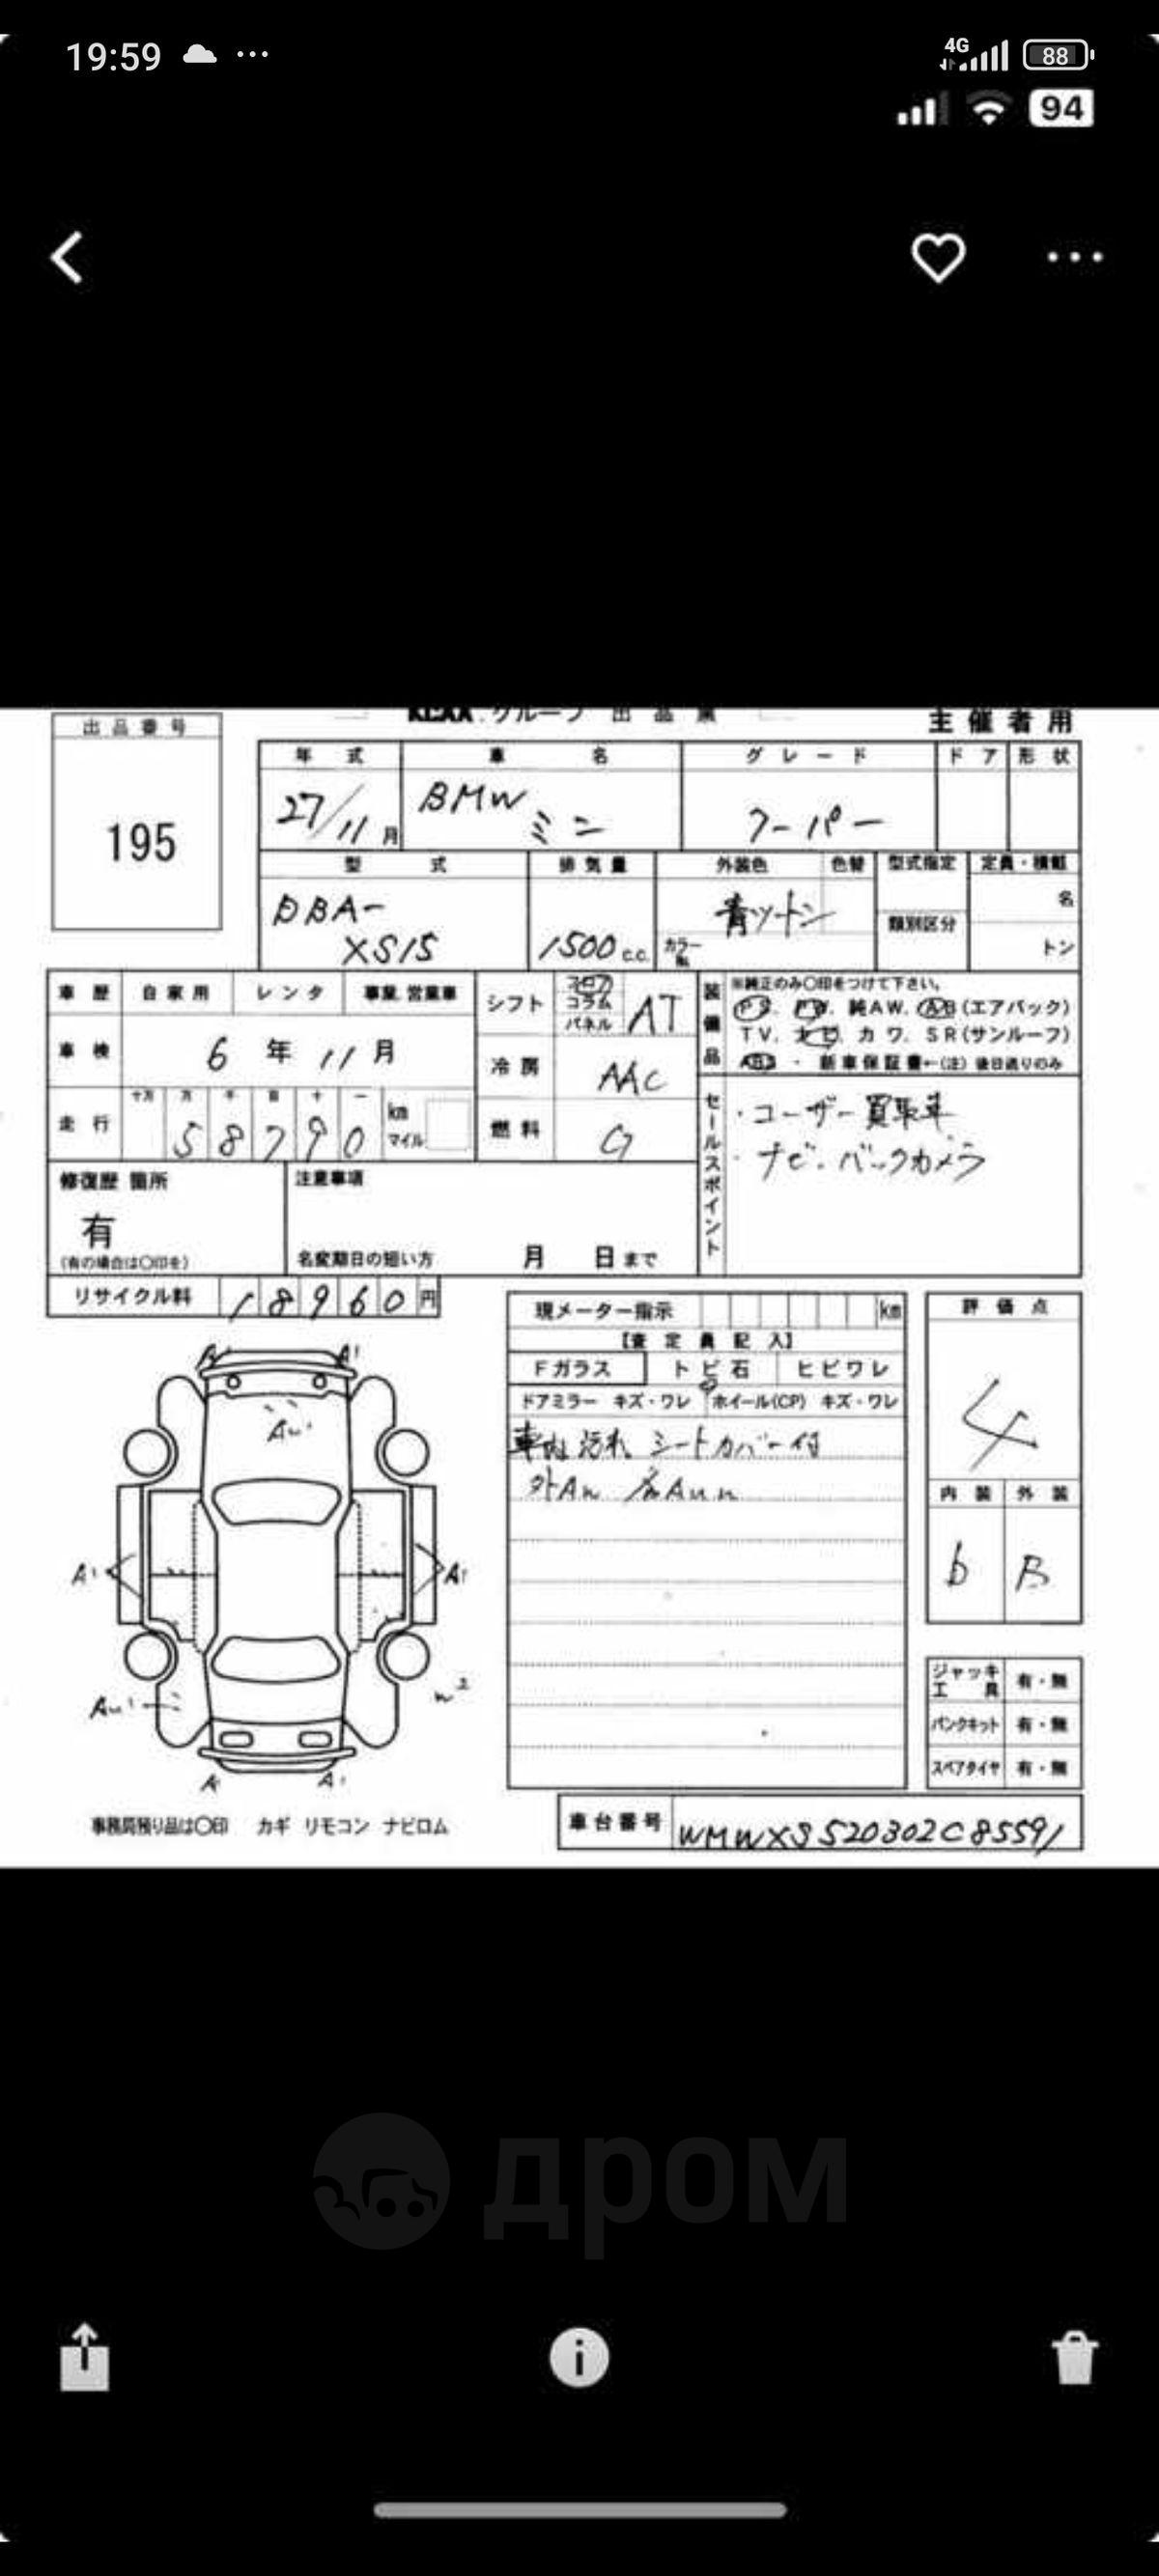 19:59
4G
88
94
グループ 出品票
主催者用
出品番号
195
年式
車名
グレード
ドア
形状
27/11月
BMW
ミニ
クーパー
型式
排気量
外装色
色替
型式指定
定員・積載
DBA-
XS15
1500 c.c.
青ツートン
カラーNo.
類別区分
名
トン
車歴
自家用
レンタ
事業 営業車
シフト
フロア
コラム
パネル
AT
装備品
※純正のみ○印をつけて下さい。
PS. PW. 純AW. AB(エアバック)
TV. ナビ. カワ. SR(サンルーフ)
ABS ・ 新車保証書←(注)後日送りのみ
車検
6年11月
冷房
AAC
走行
十万 万 千 百 十 一
58790
km
マイル
燃料
G
セールスポイント
・ユーザー買取車
・ナビ. バックカメラ
修復歴 箇所
有
(有の場合は○印を)
注意事項
名変期日の短い方 月 日まで
リサイクル料
18960円
現メーター指示
km
【査定員記入】
Fガラス
トビ石
ヒビワレ
ドアミラー キズ・ワレ
ホイール(CP) キズ・ワレ
車内汚れ シートカバー付
評価点
4
内装
外装
b
B
A1
Au1
A1
A1
Au1
w2
A1
A1
ジャッキ工具
有・無
パンクキット
有・無
スペアタイヤ
有・無
事務局預り品は○印 カギ リモコン ナビロム
車台番号
WMWXS520302C85591
дром